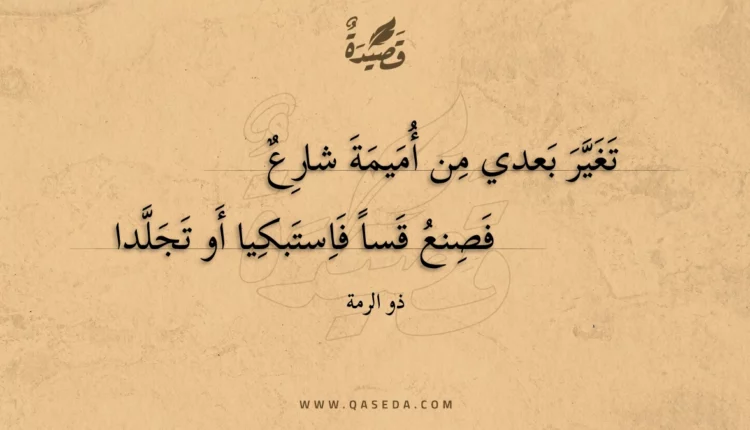 قَصِيْدَةٌ
تَغَيَّرَ بَعدي مِن أُمَيمَةَ شارِعٌ
فَصِنعُ قَساً فَاِستَبكِيا أَو تَجَلَّدا
ذو الرمة
WWW.QASEDA.COM